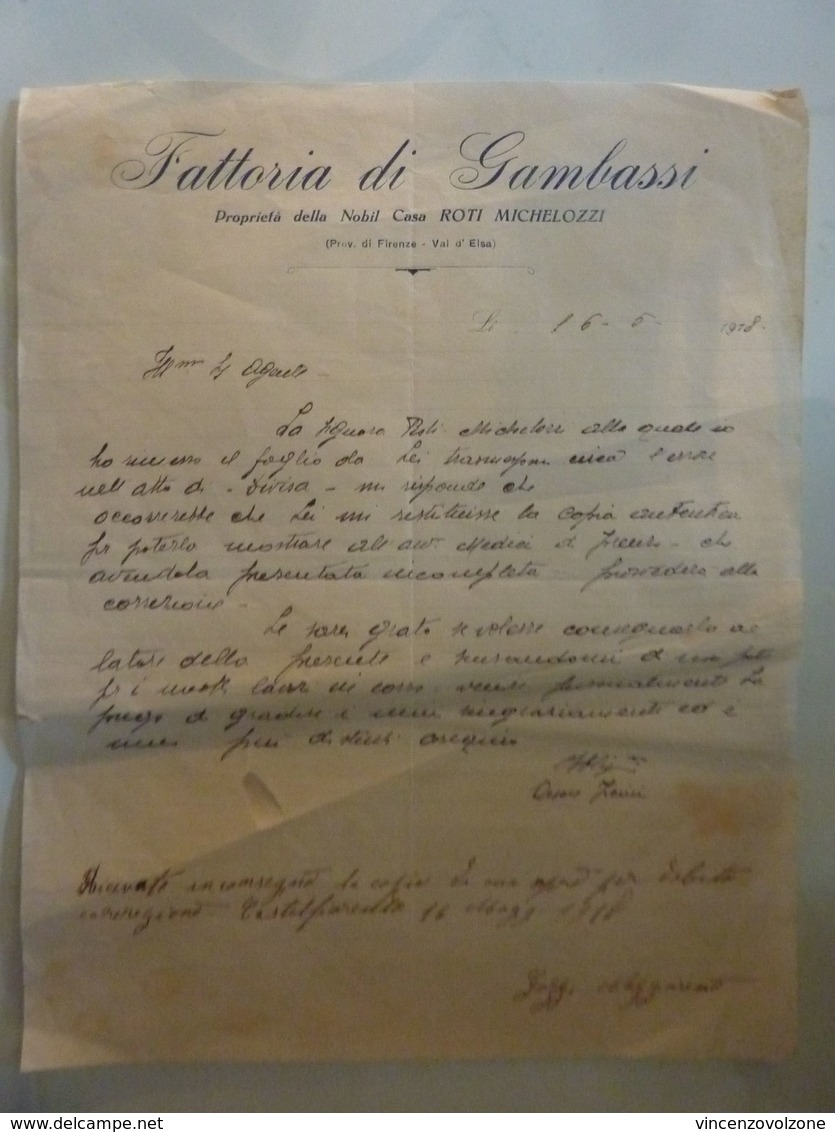 Fattoria di Gambassi
Proprietà della Nobil Casa ROTI MICHELOZZI
(Prov. di Firenze - Val d'Elsa)
Lì 16-5- 1918-
Ill.mo Agente
La Signora Roti Michelozzi alla quale io
ho il foglio da Lei circa l'errore
nell'atto di - Divisa - mi risponde che
occorrerebbe che Lei mi restituisse la copia autentica
per poterla mostrare all'avv. Medici di Firenze - che
avendola presentata incompleta - provvederà alla
correzione -
Le sarei grato se volesse consegnarla al
latore della presente e scusandomi di non poter
per i molti lavori in corso venire personalmente La
prego di gradire i miei ringraziamenti ed i
miei più distinti ossequi
Ricevuto in consegna la copia di cui sopra per debita
correzione Castelfiorentino 16 Magg 1918